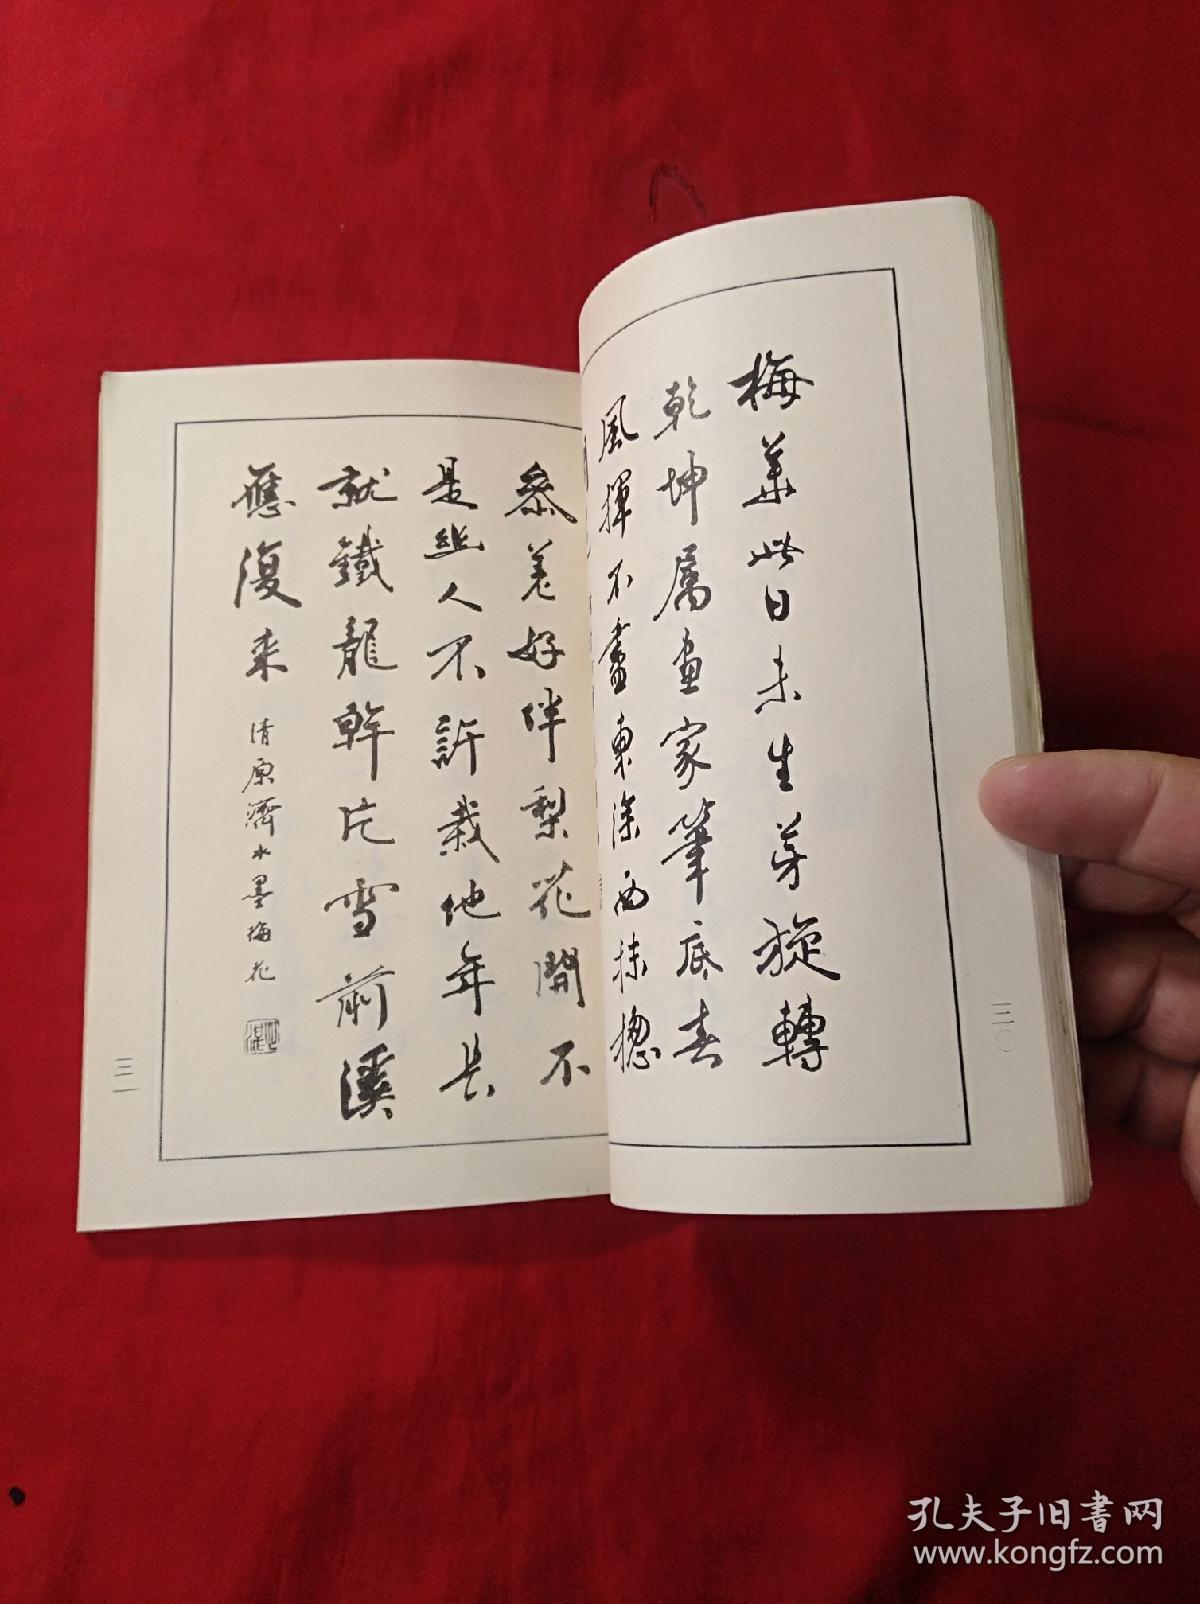 梅華此日未生芽旋轉
乾坤屬畫家筆底春
風揮不盡東塗西抹總
三〇
參差好伴梨花開不
是幽人不許栽他年長
就鐵龍幹片雪前溪
應復來
清原濟水墨梅花
三一
孔夫子旧書网
www.kongfz.com